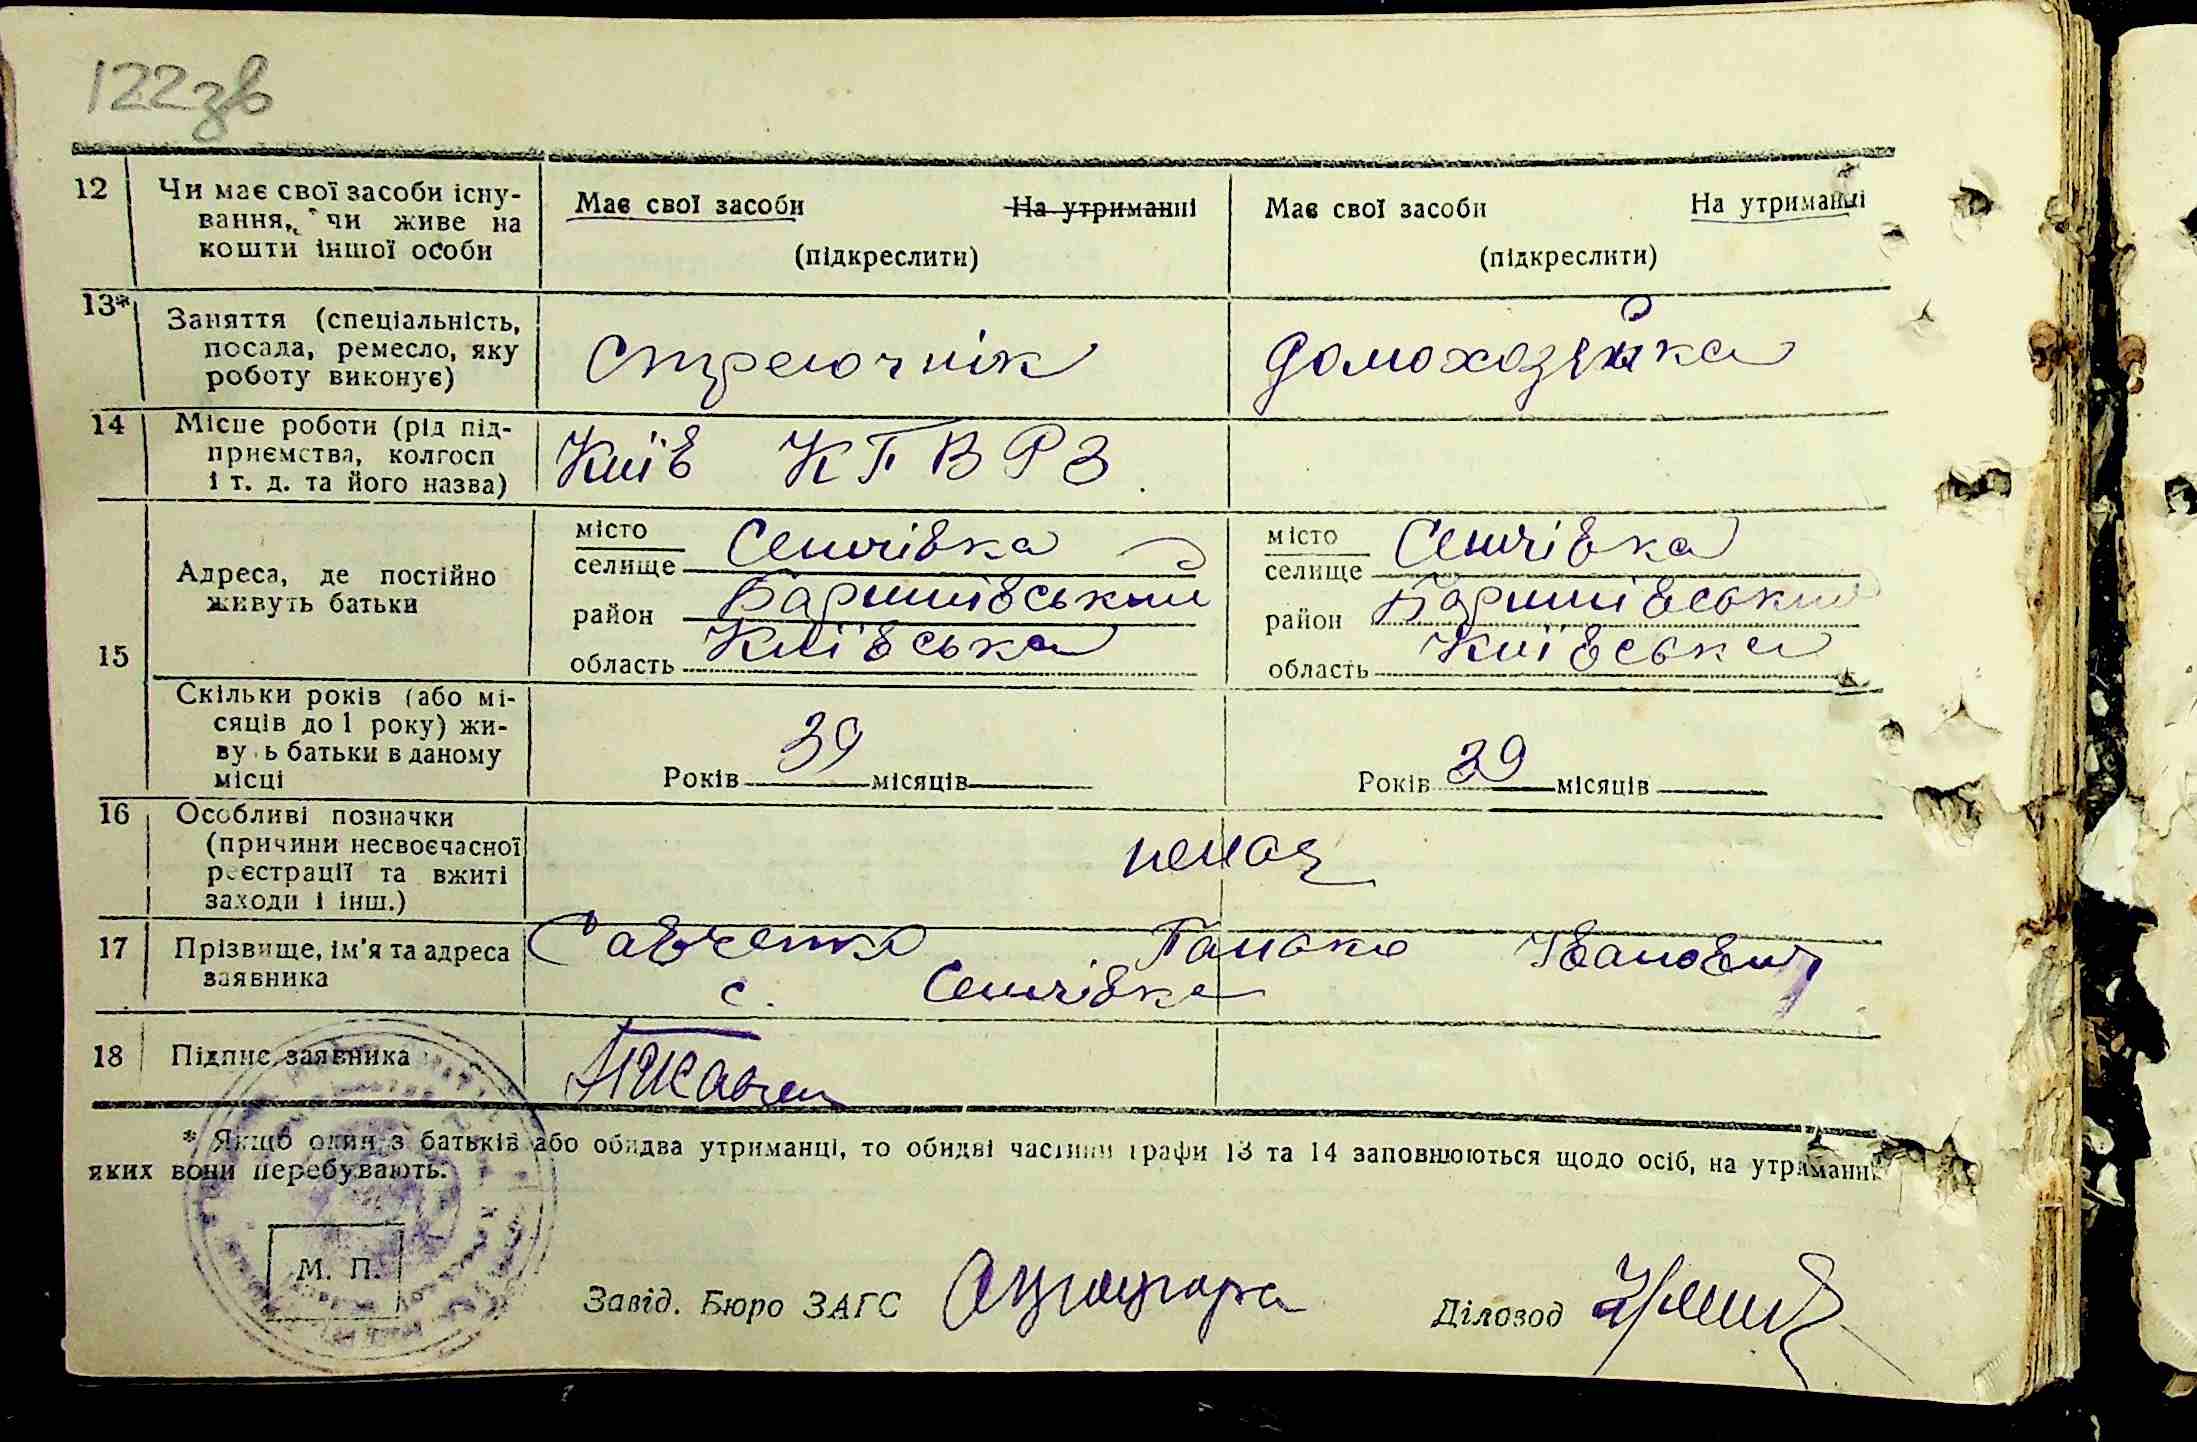 122зв
12 Чи має свої засоби існу- Має свої засоби На утриманні Має свої засоби На утриманні
вання, чи живе на
кошти іншої особи (підкреслити) (підкреслити)
13* Заняття (спеціальність,
посада, ремесло, яку Стрелочнік Домохозяйка
роботу виконує)
14 Місце роботи (рід під-
приємства, колгосп Київ КПВРЗ
і т. д. та його назва)
місто Сенчівка місто Сенчівка
селище селище
15 Адреса, де постійно
живуть батьки
район Баришівський район Баришівський
область Київська область Київська
Скільки років (або мі-
сяців до 1 року) жи-
вуть батьки в даному
місці Років 39 місяців Років 39 місяців
16 Особливі позначки
(причини несвоєчасної немає
реєстрації та вжиті
заходи і інш.)
17 Прізвище, ім'я та адреса Савченко Панько Іванович
заявника с. Сенчівка
18 Підпис заявника
* Якщо один з батьків або обидва утриманці, то обидві частини графи 13 та 14 заповнюються щодо осіб, на утриманні
яких вони перебувають.
М. П.
Завід. Бюро ЗАГС Діловод